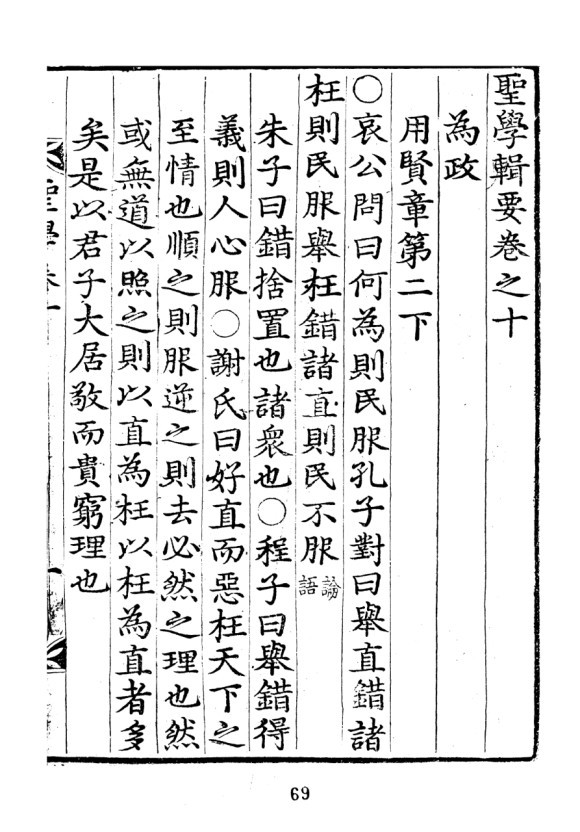 聖學輯要卷之十
為政
用賢章第二下
○哀公問曰何為則民服孔子對曰舉直錯諸
枉則民服舉枉錯諸直則民不服論語
朱子曰錯捨置也諸衆也○程子曰舉錯得
義則人心服○謝氏曰好直而惡枉天下之
至情也順之則服逆之則去必然之理也然
或無道以照之則以直為枉以枉為直者多
矣是以君子大居敬而貴窮理也
69